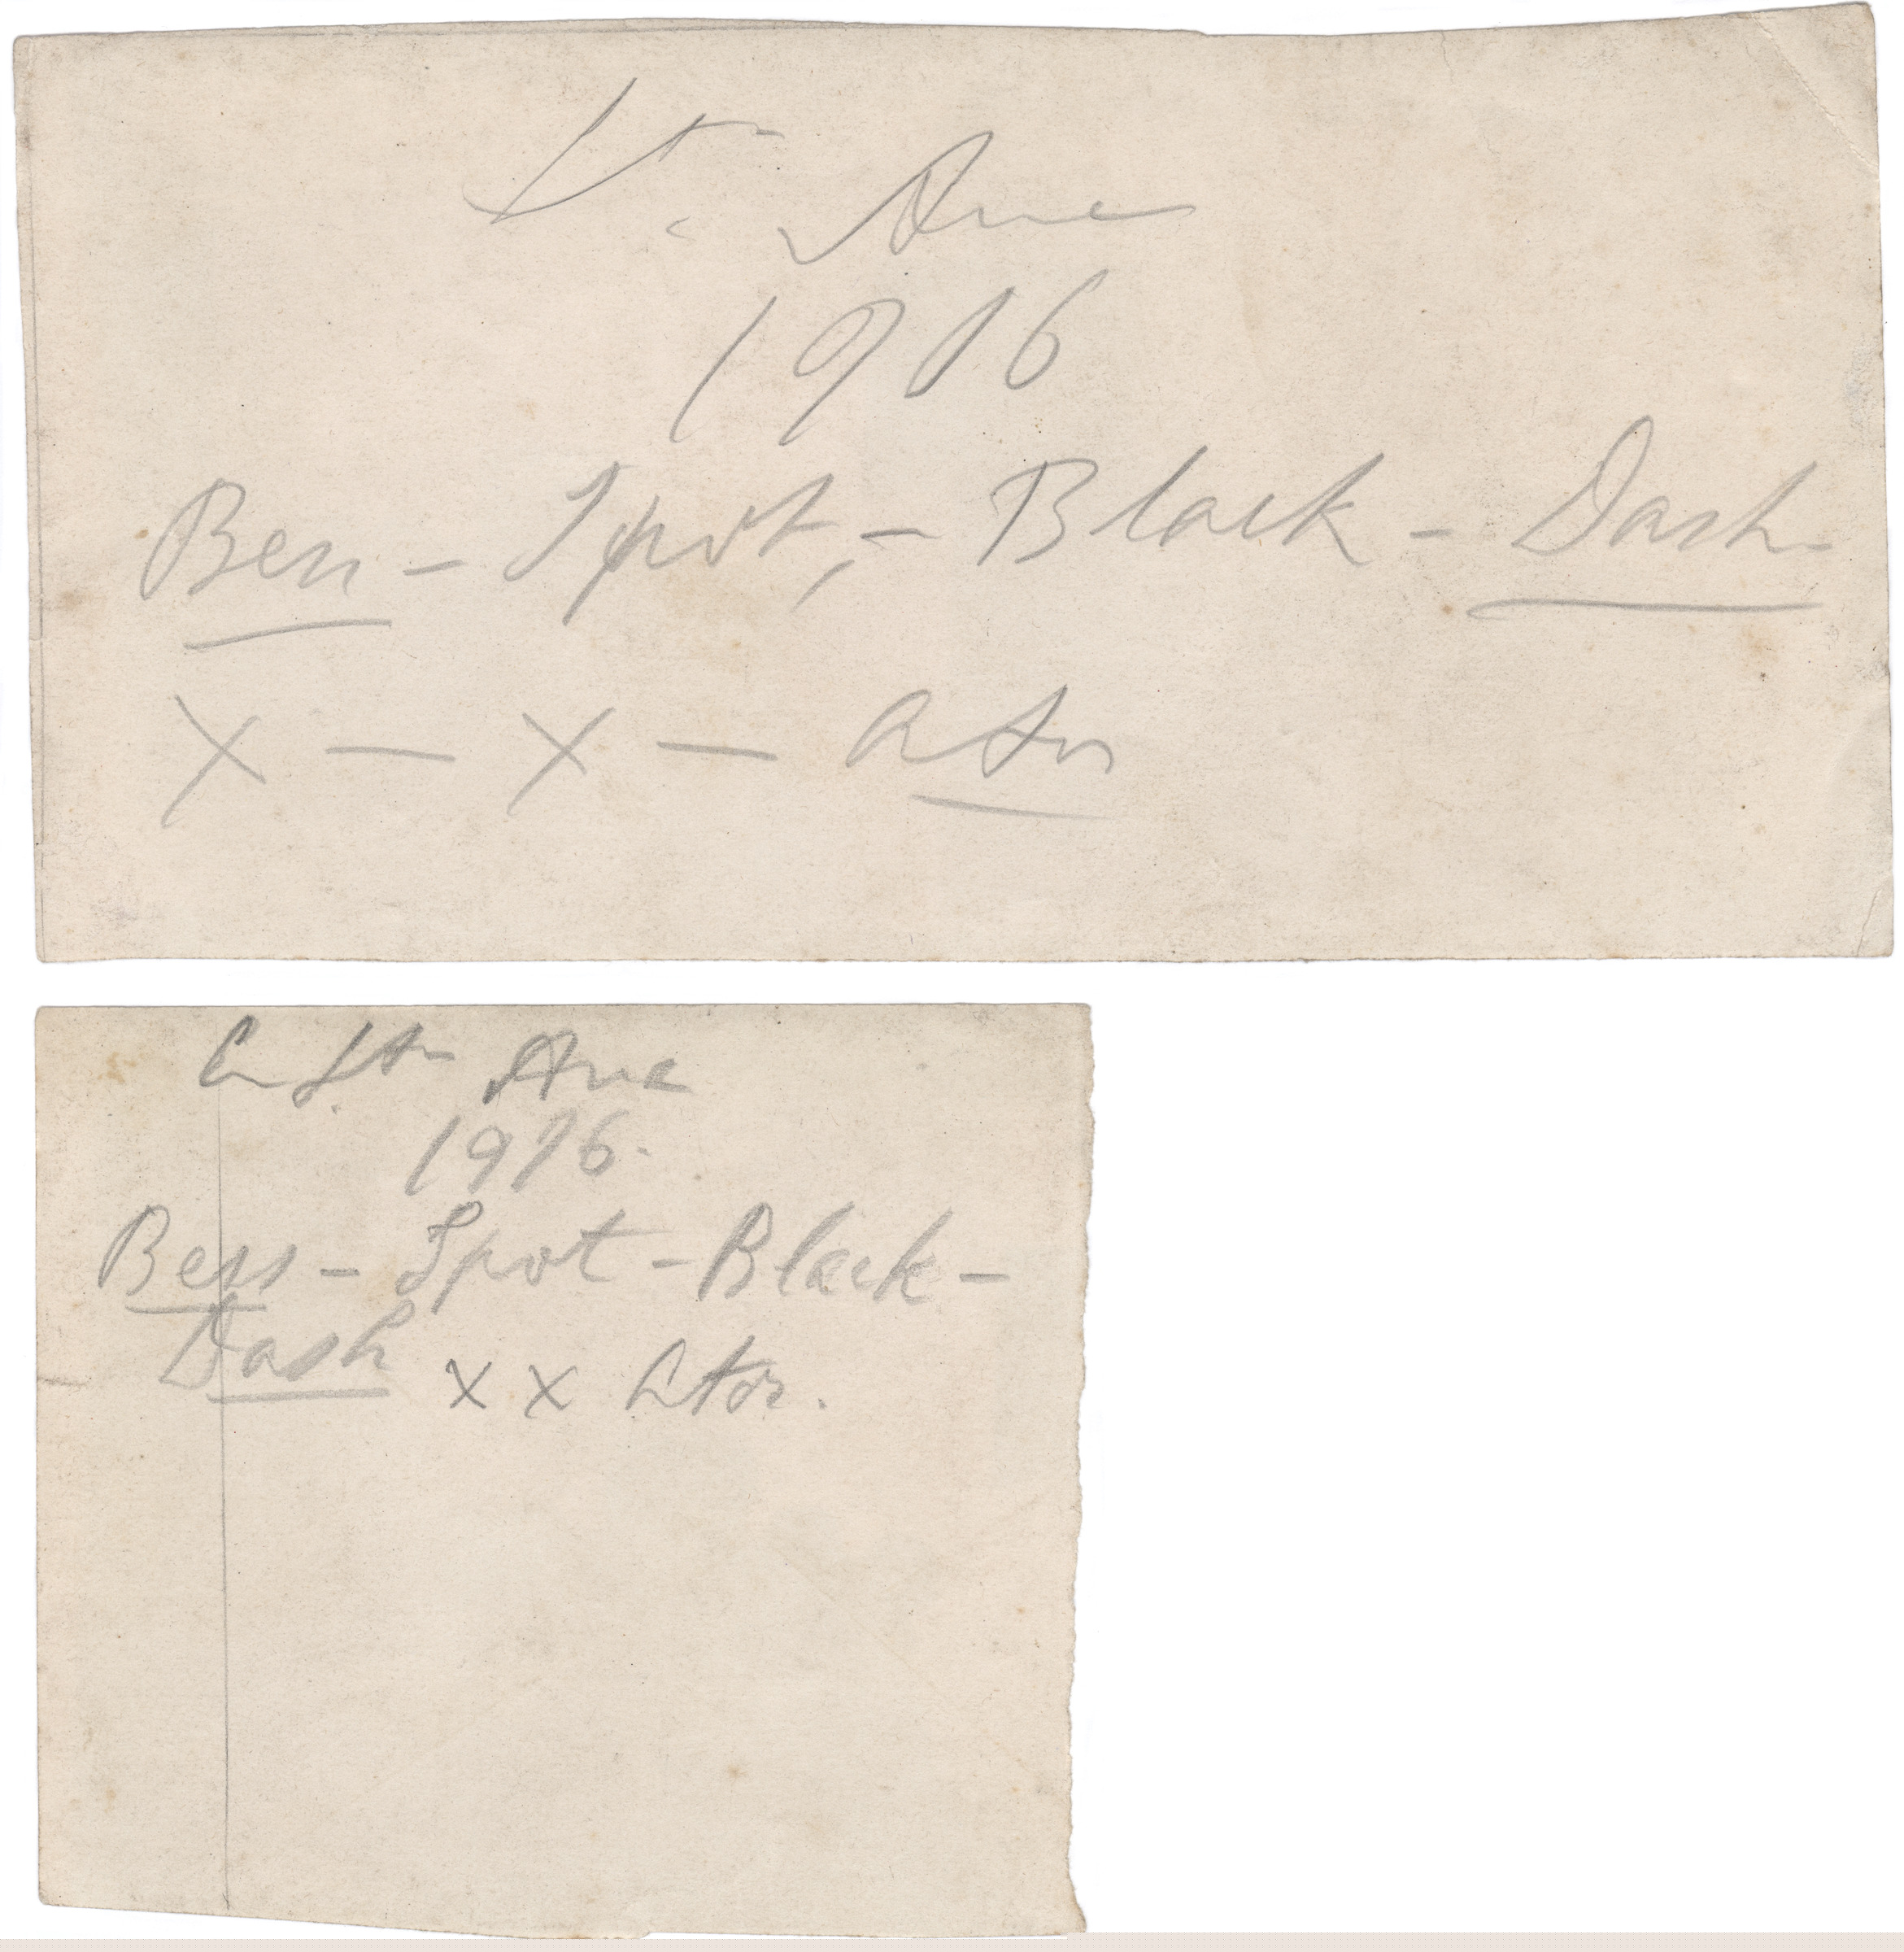 Ave
1916
Bess - Spot, - Black - Dash
x - x - ator
Ave
1916.
Bess - Spot - Black -
Dash x x Ator.